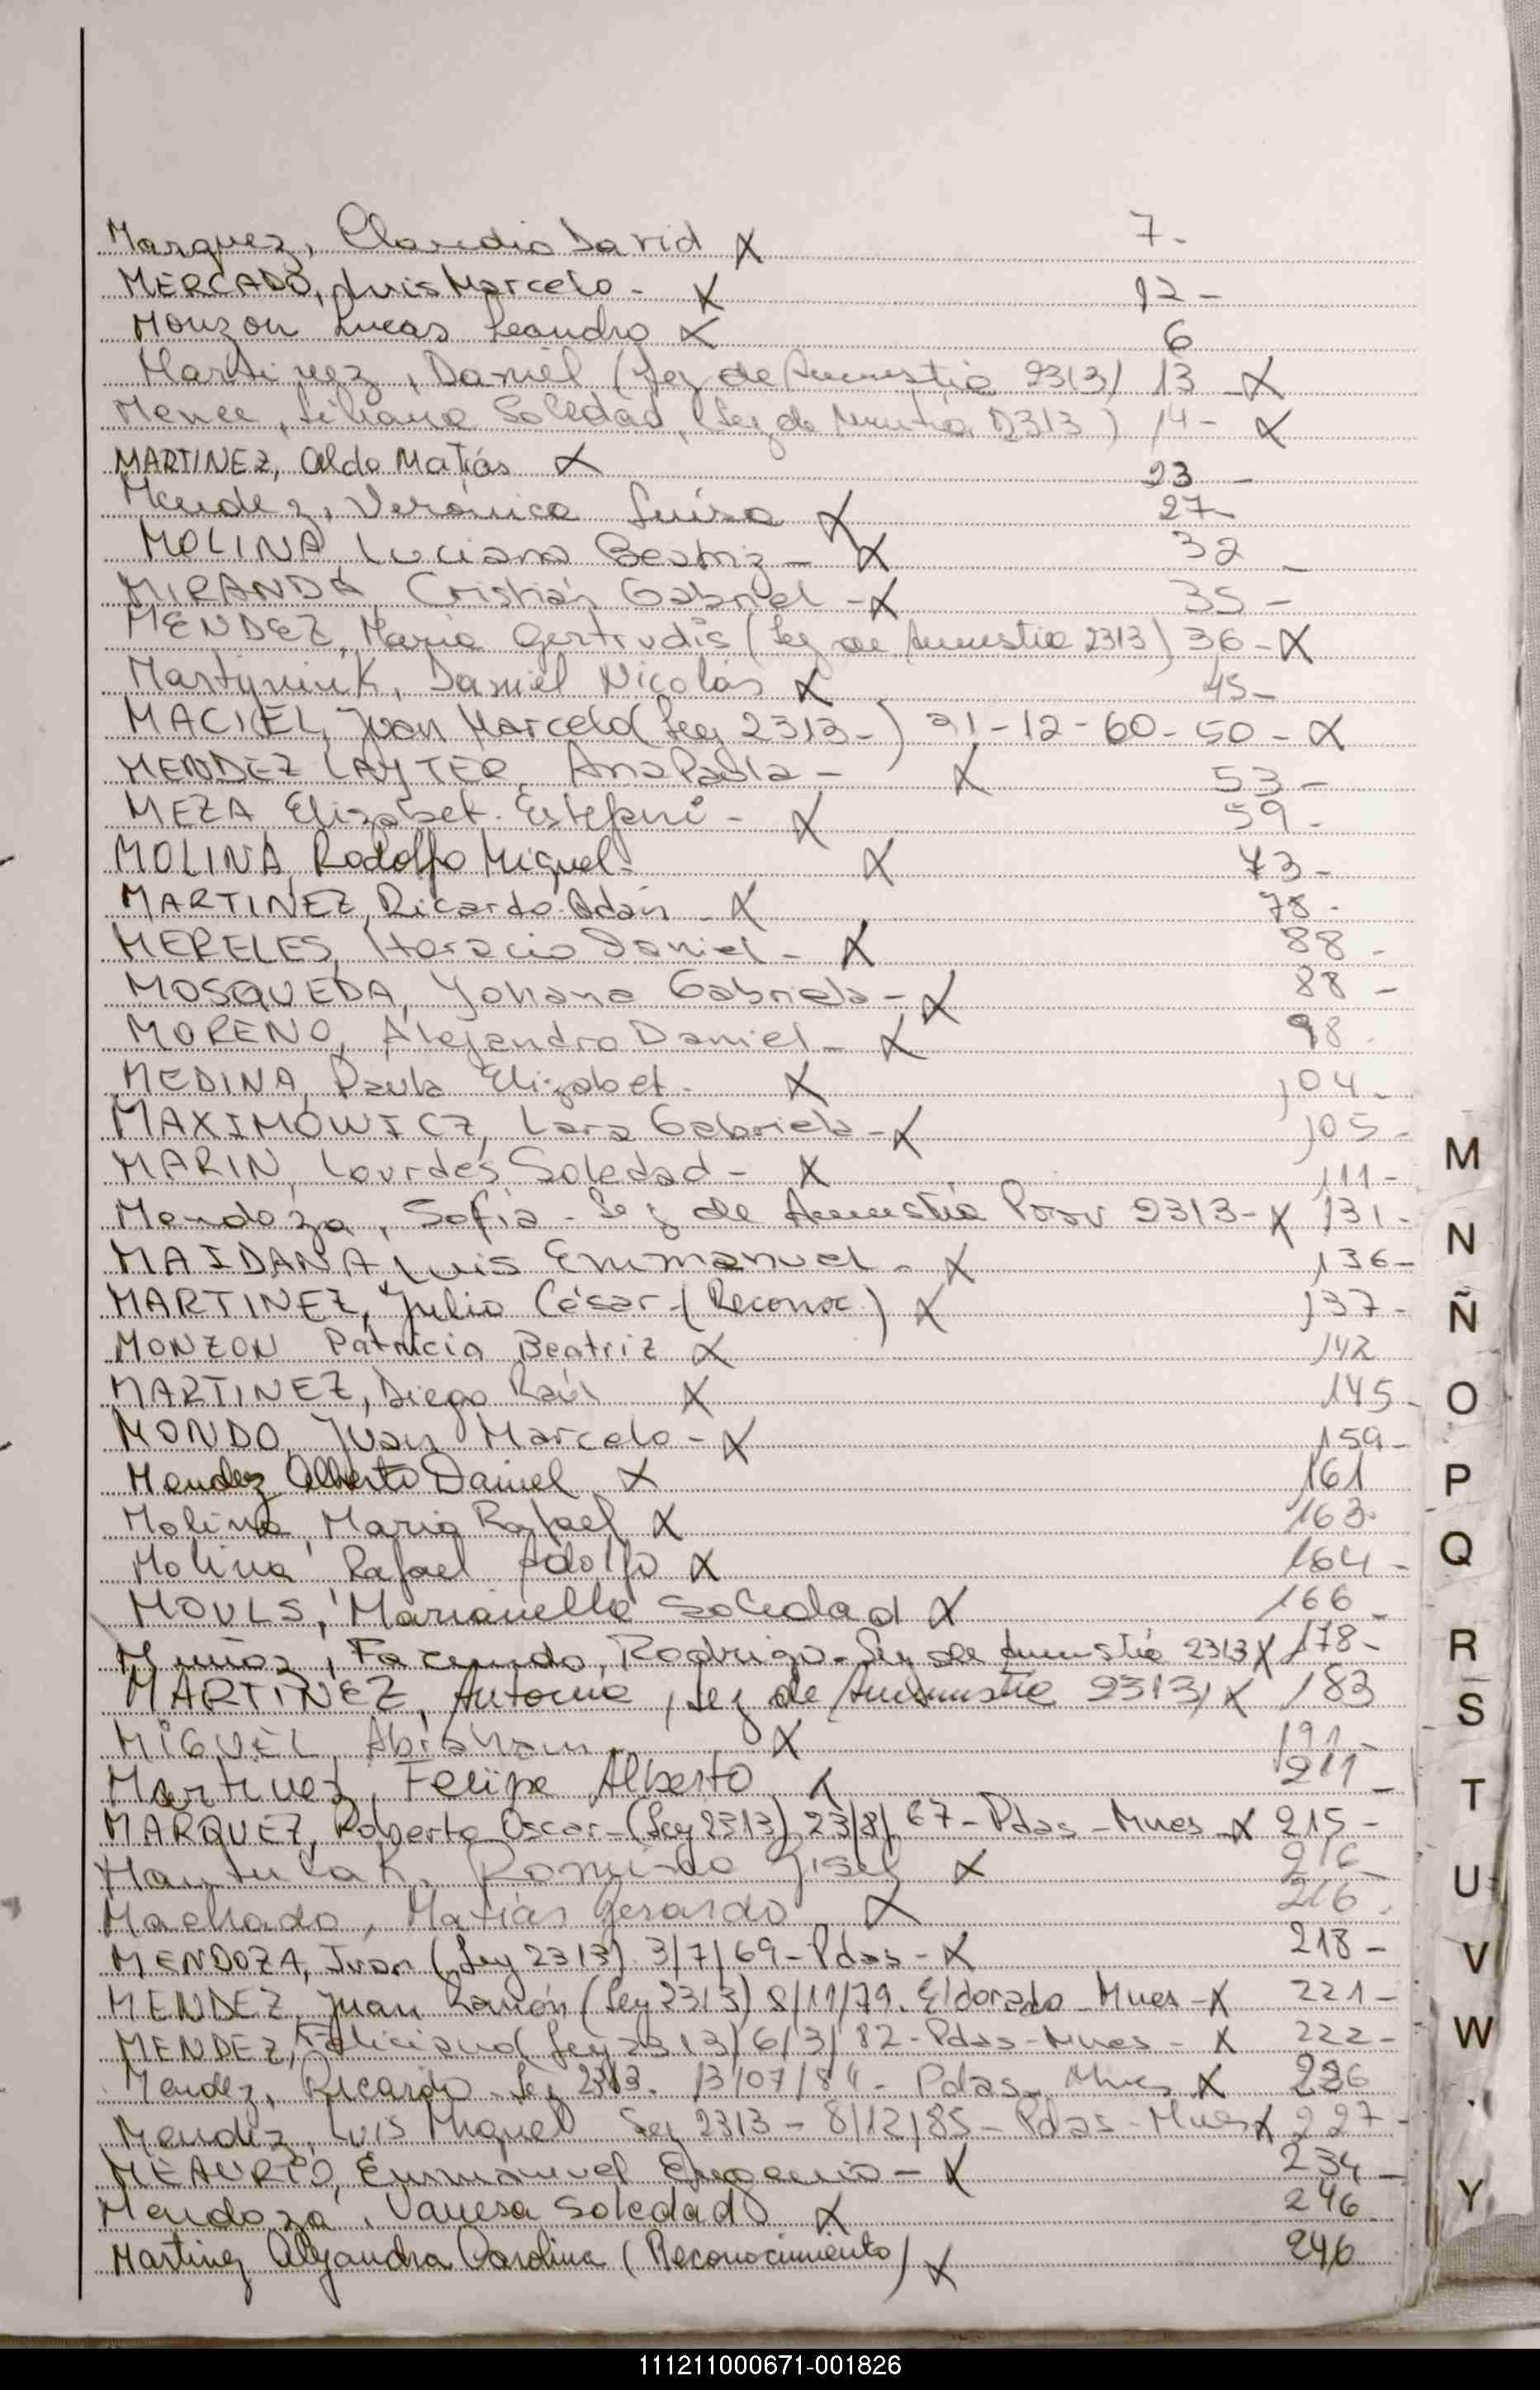 Marquez, Claudio David X 7-
MERCADO, Luis Marcelo - X 12-
Monzon Lucas Leandro X 6
Martinez, Daniel (Ley de Amnistia 2313) 13 - X
Liliana Soledad, (Ley de 2313) 14- X
MARTINEZ, Aldo Matías X 23 -
Mendez, Verónica Luisa X 27-
MOLINA, Luciana Beatriz - X 32 -
MIRANDA, Cristián Gabriel - X 35 -
MENDEZ, Maria Gertrudis (Ley de Amnistia 2313) 36 - X
Martyniuk, Daniel Nicolás X 45-
MACIEL, Juan Marcelo (Ley 2313-) 21-12-60-50 - X
MENDEZ LAYTER, Ana Paola - X 53 -
MEZA Elizabet Estefani - X 59 -
MOLINA, Rodolfo Miguel - X 73 -
MARTINEZ, Ricardo Adán - X 78 -
MERELES, Horacio Daniel - X 88 -
MOSQUEDA, Yohana Gabriela - X 88 -
MORENO, Alejandro Daniel - X 98 -
MEDINA, Paula Elizabet - X 104 -
MAXIMOWICZ, Lara Gabriela - X 105 -
MARIN, Lourdes Soledad - X 111 -
Mendoza, Sofia - Ley de Amnistia Prov 2313 - X 131 -
MAIDANA, Luis Emmanuel - X 136 -
MARTINEZ, Julio César - (Reconoc.) X 137 -
MONZON Patricia Beatriz X 142
MARTINEZ, Diego Raúl X 145 -
MONDO, Juan Marcelo - X 159 -
Mendez Alberto Daniel X 161
Molina, Maria Rafael X 163-
Molina, Rafael Adolfo X 164 -
MOULS, Marianella Soledad X 166 -
Muñoz, Facundo, Rodrigo - Ley de Amnistia 2313 X 178 -
MARTINEZ, Antonia, Ley de Amnistia 2313, X 183
MIGUEL, Abraham X 191 -
Martinez, Felipe Alberto X 211 -
MARQUEZ, Roberto Oscar - (Ley 2313) 23/8/67 - Pdas - Mnes X 215 -
Gisel X 216 -
Machado, Matías Gerardo X 216 -
MENDOZA, Juan (Ley 2313) 3/7/69 - Pdas - X 218 -
MENDEZ, Juan Ramón (Ley 2313) 8/11/79. Eldorado - Mnes - X 221 -
MENDEZ, Feliciano (Ley 2313) 6/3/82 - Pdas - Mnes - X 222 -
Mendez, Ricardo - Ley 2313. 13/07/84 - Pdas - Mnes X 226
Mendez, Luis Miguel Ley 2313 - 8/12/85 - Pdas - Mnes X 227 -
MEAURIO, Emmanuel Eugenio - X 234 -
Mendoza, Vanesa Soledad X 246
Martinez Alejandra Carolina (Reconocimiento) X 246
M
N
Ñ
O
P
Q
R
S
T
U
V
W
Y
111211000671-001826